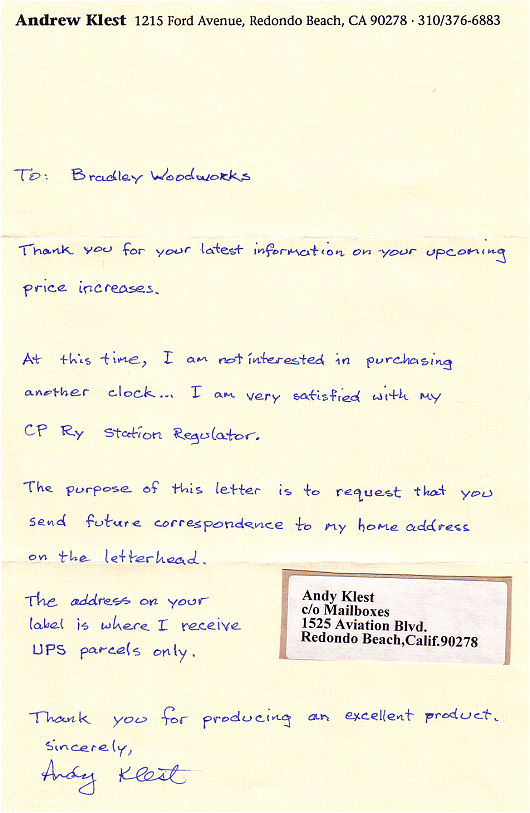 Andrew Klest 1215 Ford Avenue, Redondo Beach, CA 90278 · 310/376-6883
To: Bradley Woodworks
Thank you for your latest information on your upcoming
price increases.
At this time, I am not interested in purchasing
another clock... I am very satisfied with my
CP Ry Station Regulator.
The purpose of this letter is to request that you
send future correspondence to my home address
on the letterhead.
The address on your
label is where I receive
UPS parcels only.
Andy Klest
c/o Mailboxes
1525 Aviation Blvd.
Redondo Beach,Calif.90278
Thank you for producing an excellent product.
Sincerely,
Andy Klest